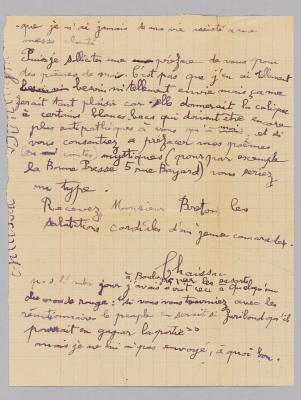 que je n'ai jamais de ma vie assisté à une
messe
Puis-je solliciter une préface de vous pour
des poèmes de moi. C'est pas que j'en ai tellement
besoin ni tellement envie mais ça me
ferait tant plaisir car elle donnerait la colique
à certains blancs becs qui doivent être encore
plus antipathiques à vous qu'à moi, et si
vous consentiez à préfacer mes poèmes
contes mystiques (pour par exemple
la Bonne Presse 5 rue Bayard) vous seriez
un type.
Recevez Monsieur Breton les
salutations cordiales d'un jeune camarade.
Chaissac
p.s. l'autre jour j'avais écrit ceci à quelqu'un
du monde rouge: si vous vous tourniez avec les
réactionnaires le peuple en serait si furibond qu'il
pourrait en gagner la partie
mais je ne lui ai pas envoyé, à quoi bon.